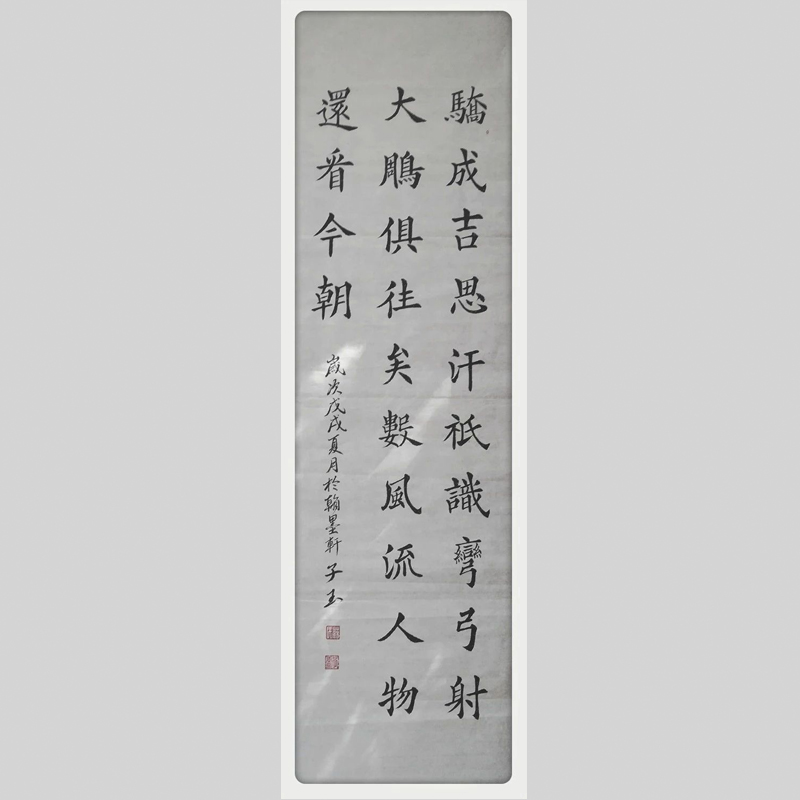 驕成吉思汗祇識彎弓射
大鵰俱往矣數風流人物
還看今朝
歲次戊戌夏月於翰墨軒子玉